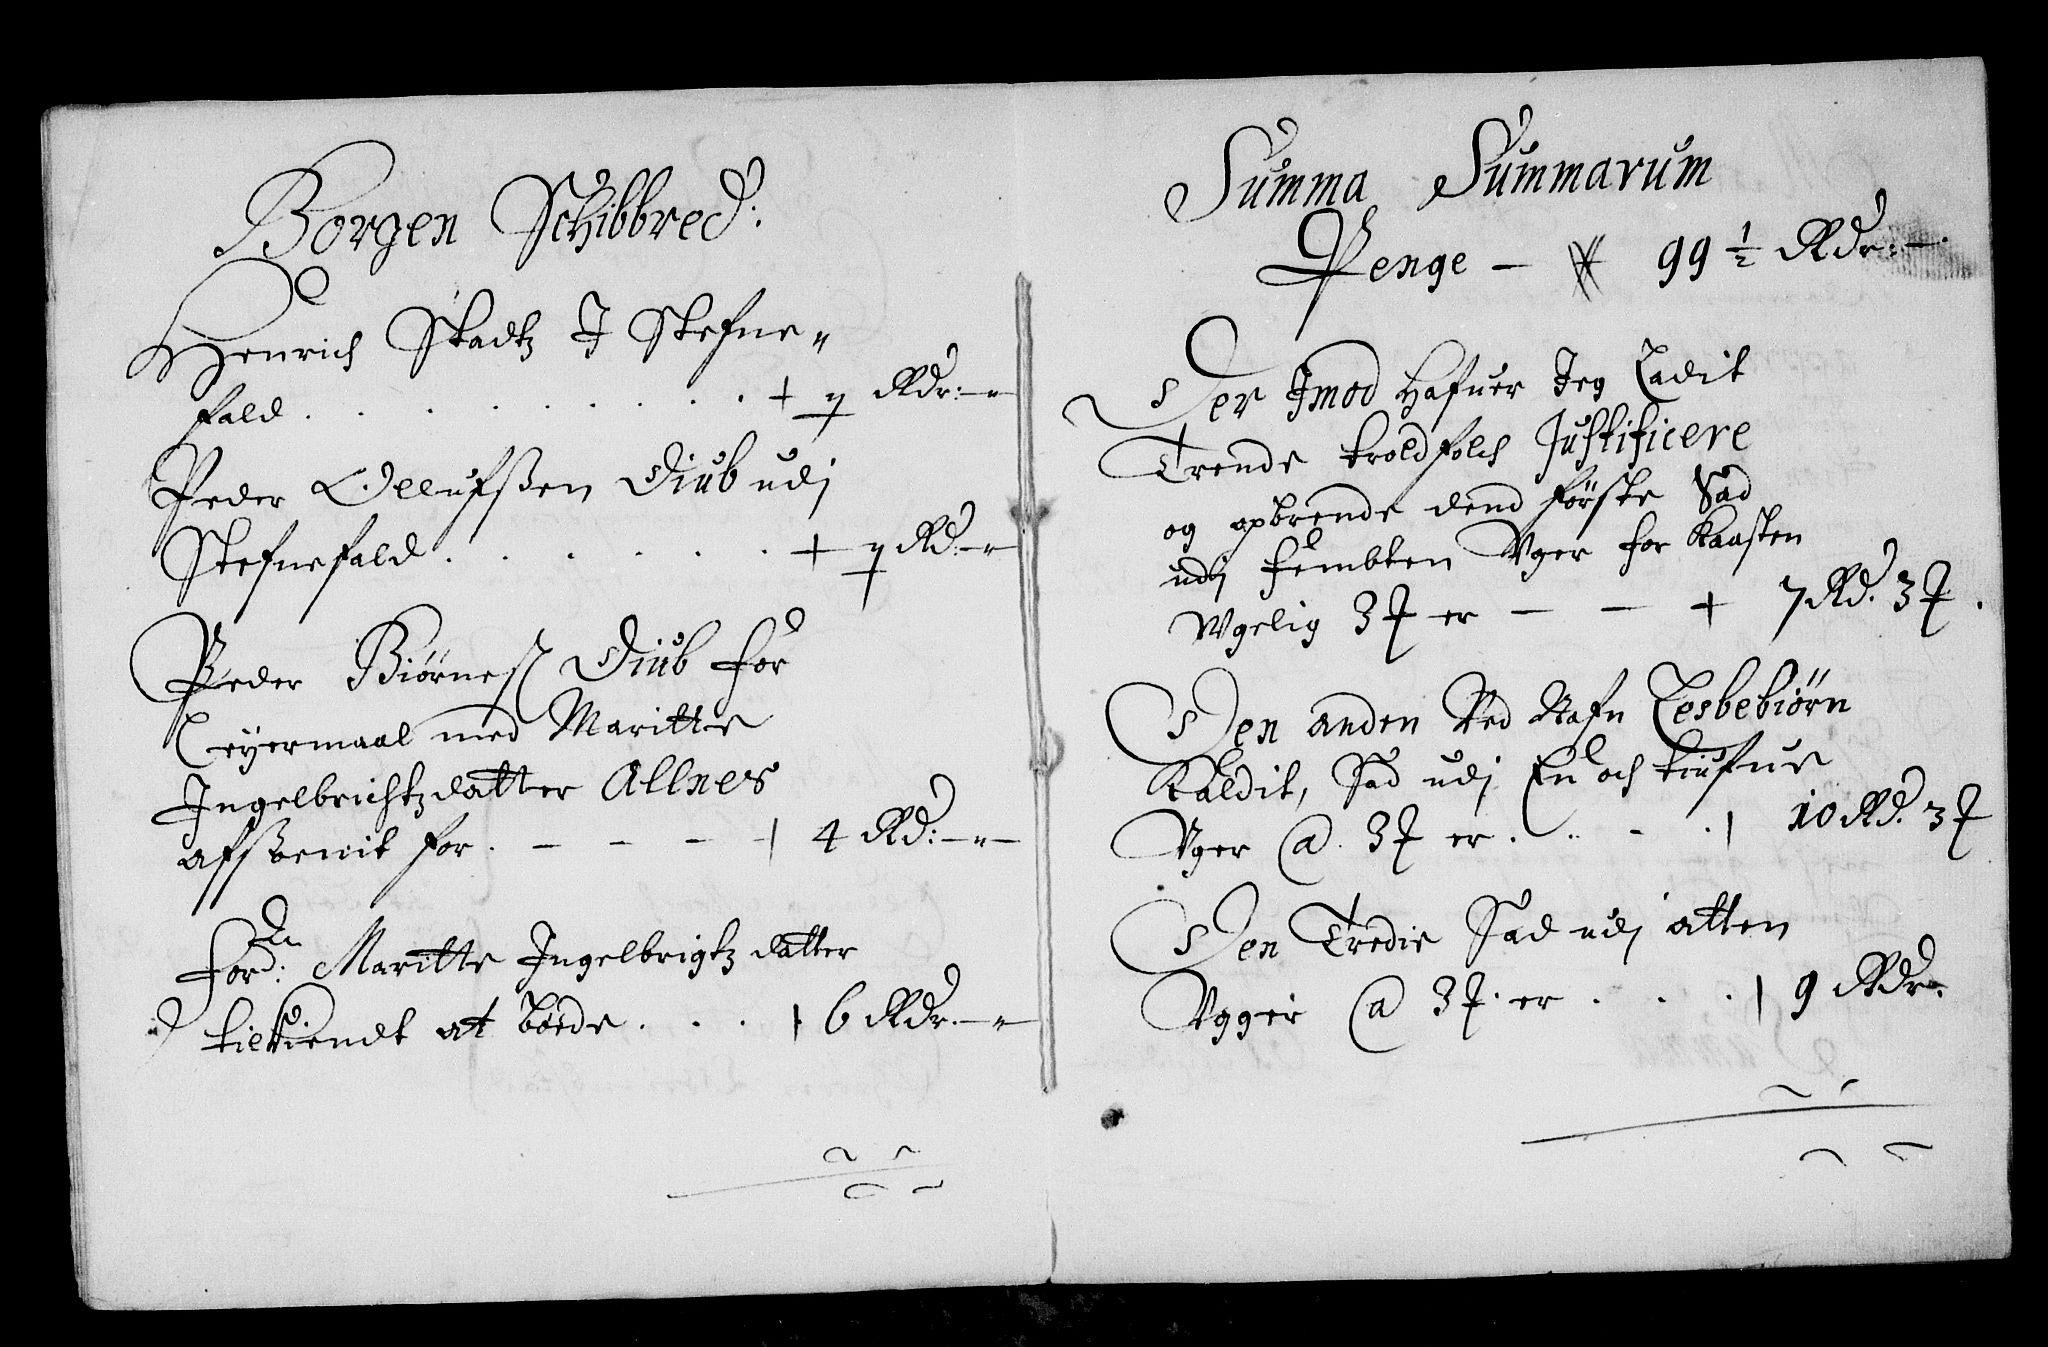 Borgen Schibbred:
Henrich Stadtz I Stefne„
fald . . . . . . . . + 7 Rdr:—„—
Peder Ollufssen Diub udj
Stefnefald . . . . . . + 7 Rd:—„—
Peder Biörnes: Diub for
Leyermaal med Maritte
Ingelbrichtzdatter Allnes
afsoenit for . — — — | 4 Rd:—„—
Ford: Maritte Ingelbrigtz datter
tilkiendt at böede . . . | 6 Rdr.—„—
Summa Summarum
Penge — 99 ½ Rdr:—.
Der Imod Hafuer Jeg Ladit
Trende troldfolch Justificere
og opbrende dend förste Sad
udj fembten Vger for Kaasten
Wgelig 3 ƒ er — — + 7 Rd. 3 ƒ.
Den anden Ved Nafn Lesbebiörn
Kaldit, Sad udj En och tiufue
Vger @ 3 ƒ er . . - . | 10 Rd. 3 ƒ
Den Tredie Sad udj atten
Vgger @ 3 ƒ. er . . . | 9 Rdr.